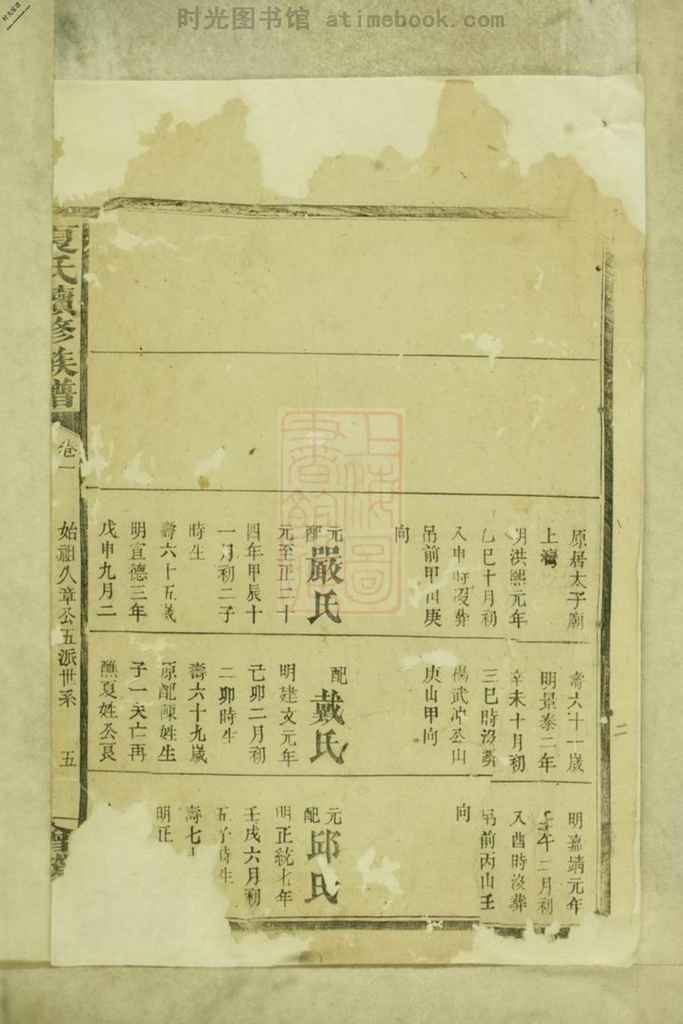 时光图书馆 atimebook.com
夏氏續修族譜
卷一
始祖久章公五派世系
五
原居太子廟
上灣
明洪熙元年
乙巳十月初
八申時歿葬
吊前甲山庚
向
元配嚴氏
元至正二十
四年甲辰十
一月初二子
時生
壽六十五歲
明宣德三年
戊申九月二
壽六十一歲
明景泰二年
辛未十月初
三巳時沒葬
楊武冲丞山
庚山甲向
配戴氏
明建文元年
己卯二月初
二卯時生
壽六十九歲
原配陳姓生
子一夭亡再
醮夏姓公艮
明嘉靖元年
壬午二月初
八酉時沒葬
吊前丙山壬
向
元配邱氏
明正統七年
壬戌六月初
五子時生
壽七
明正